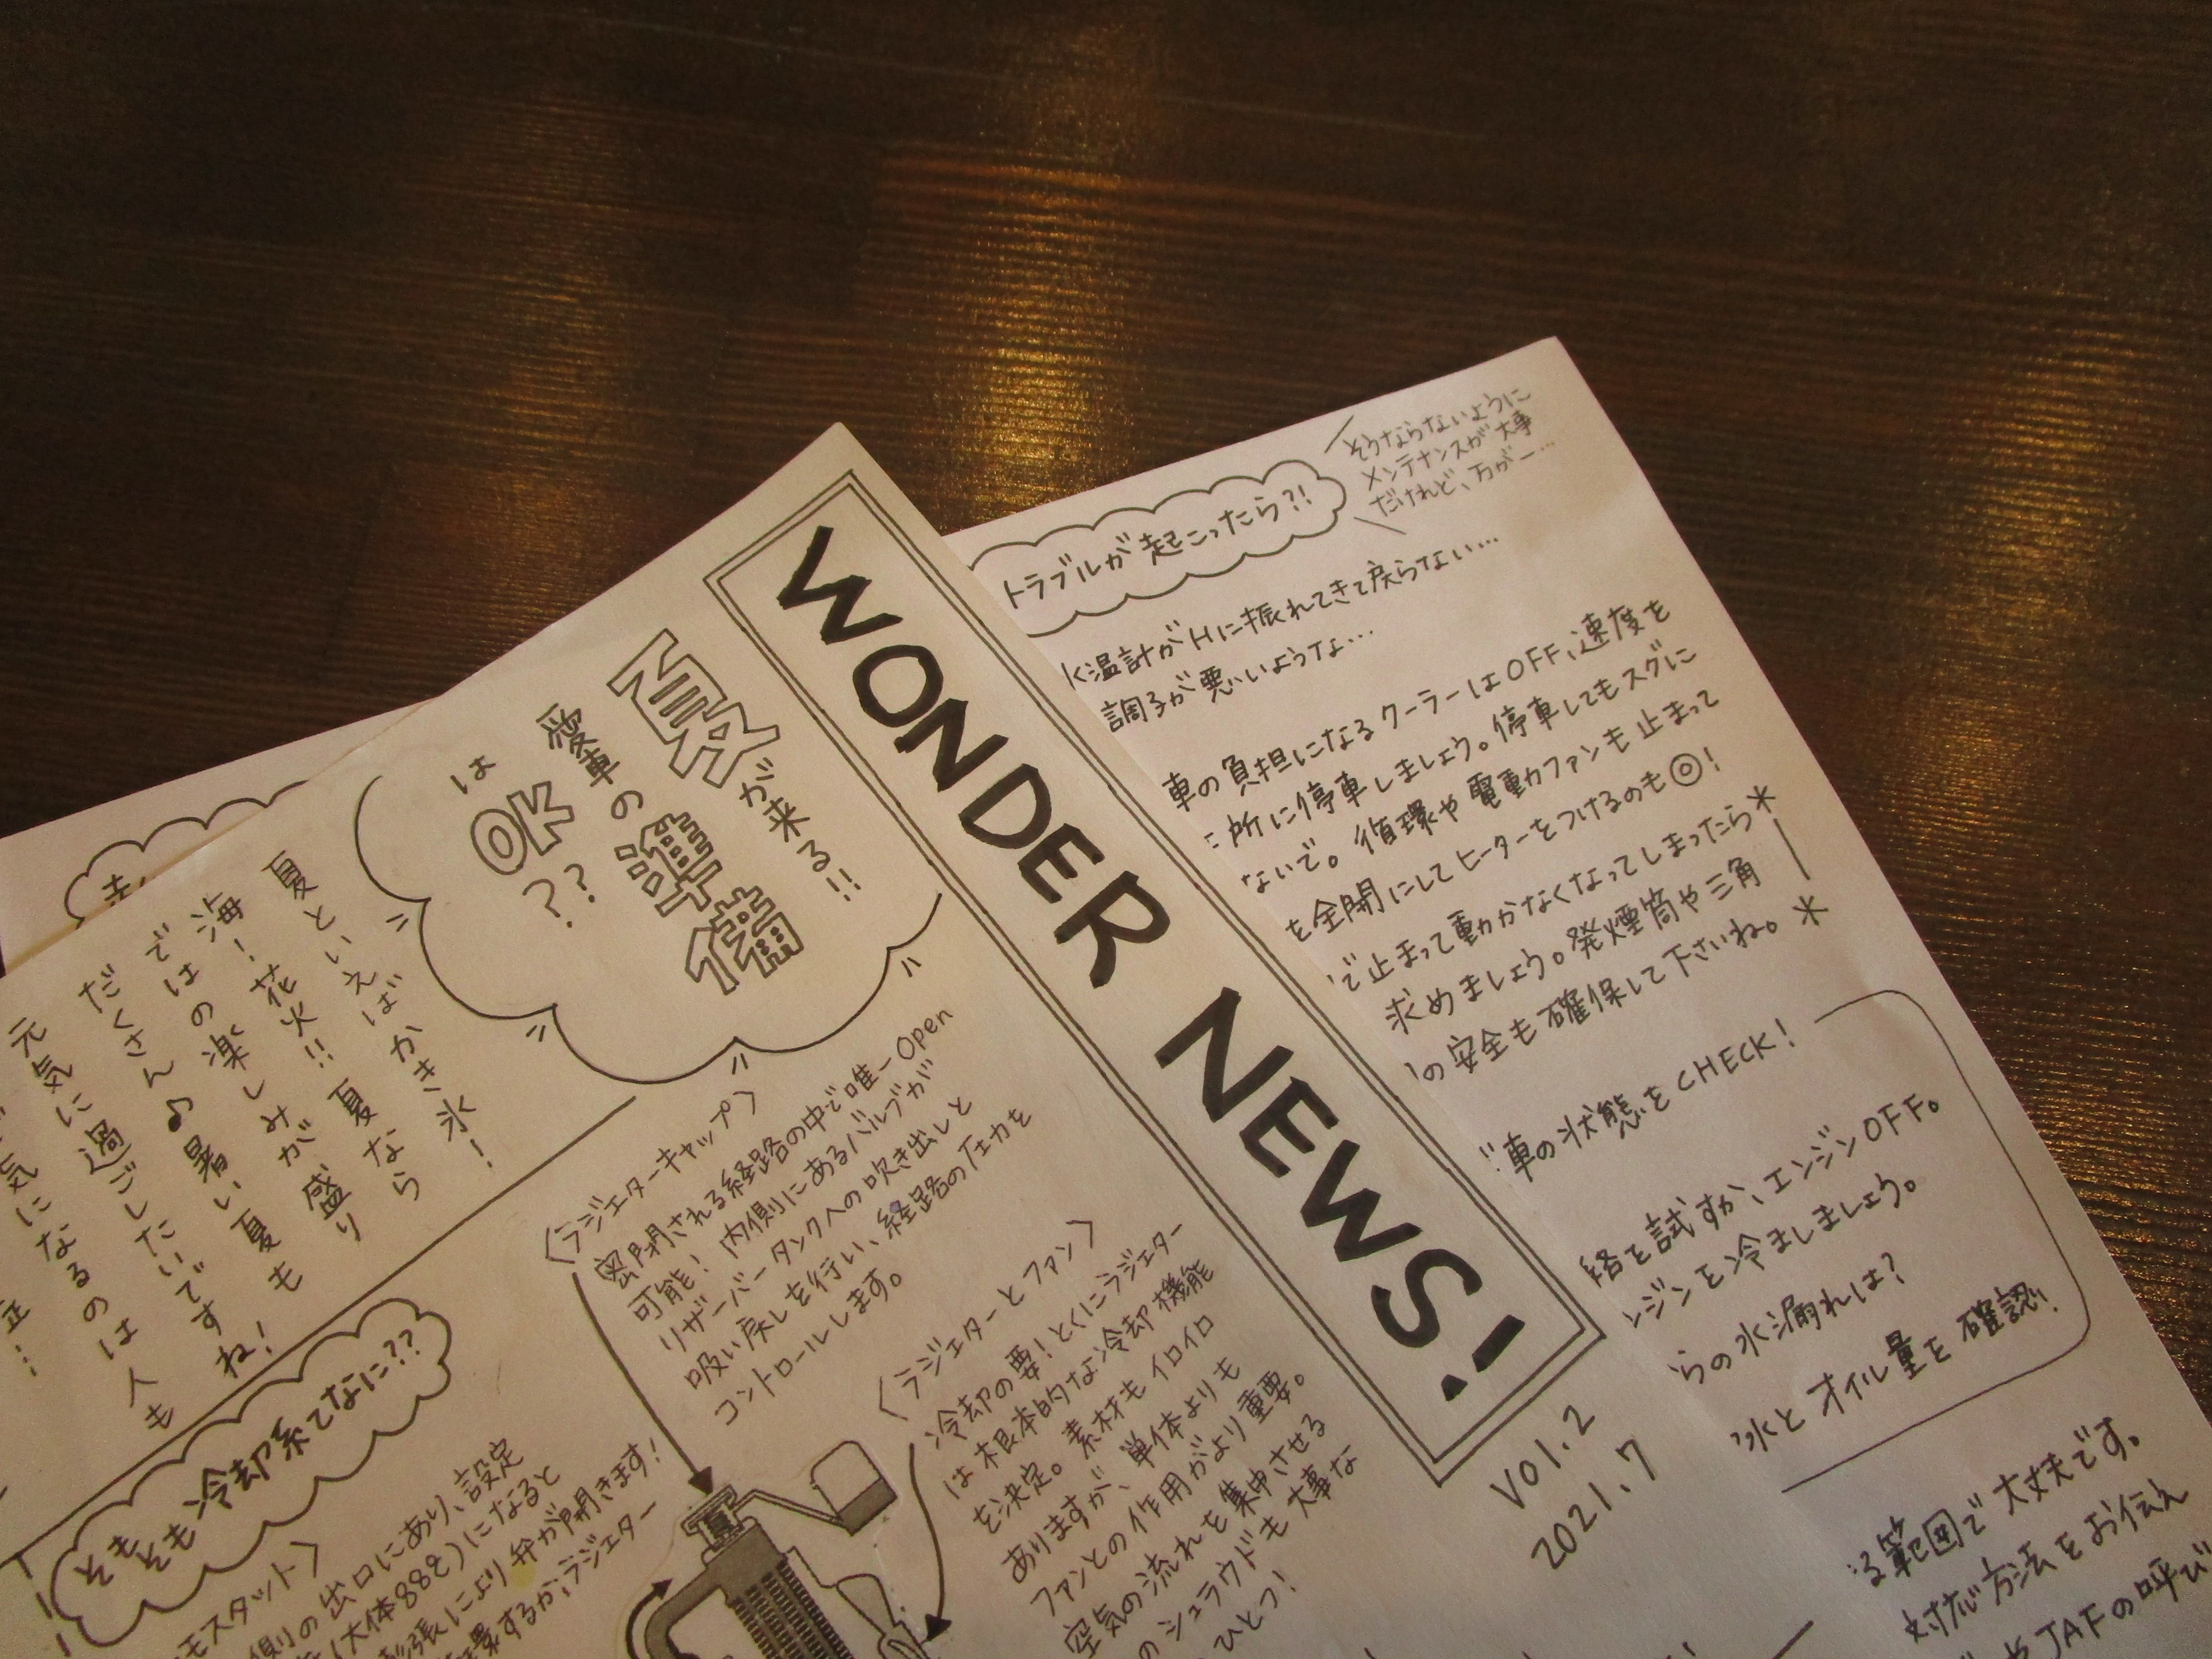 WONDER NEWS!
vol.2
2021.7
夏が来る!!
愛車の準備
は
OK
??
夏といえばかき氷!
海!花火!!夏なら
ではの楽しみが盛り
だくさん♪暑い夏も
元気に過ごしたいですね!
気になるのは人も
そもそも冷却系てなに??
モスタット〉
側の出口にあり、設定
(大体88℃)になると
膨張により弁が開きます!
するか、ラジエター
〈ラジエターキャップ〉
密閉される経路の中で唯一Open
可能!内側にあるバルブが
リザーバータンクへの吹き出しと
吸い戻しを行い、経路の圧力を
コントロールします。
〈ラジエターとファン〉
冷却の要!とくにラジエター
は根本的な冷却機能
を決定。素材もイロイロ
ありますが、単体よりも
ファンとの作用がより重要。
空気の流れを集中させる
のシュラウドも大事な
ひとつ!
トラブルが起こったら?!
そうならないように
メンテナンスが大事
だけれど、万が一…
水温計がHに振れてきて戻らない…
調子が悪いような…
車の負担になるクーラーはOFF、速度を
所に停車しましょう。停車してもスグに
ないで。循環や電動ファンも止まって
を全開にしてヒーターをつけるのも◎!
で止まって動かなくなってしまったら*
求めましょう。発煙筒や三角
の安全も確保して下さいね。*
車の状態をCHECK!
絡を試すか、エンジンOFF。
ンジンを冷ましましょう。
らの水漏れは?
水とオイル量を確認!
る範囲で大丈夫です。
対応方法をお伝え
やJAFの呼び